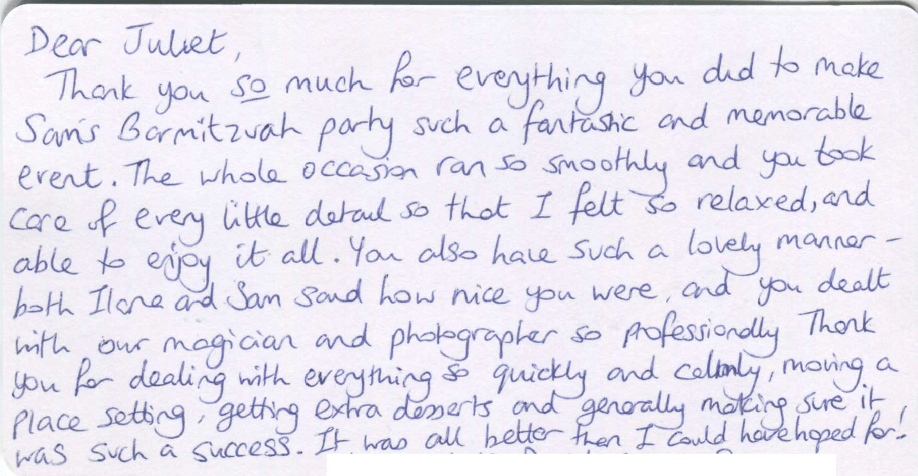 Dear Juliet,
Thank you so much for everything you did to make
Sam's Barmitzvah party such a fantastic and memorable
event. The whole occasion ran so smoothly and you took
care of every little detail so that I felt so relaxed, and
able to enjoy it all. You also have such a lovely manner -
both Ilana and Sam said how nice you were, and you dealt
with our magician and photographer so professionally Thank
you for dealing with everything so quickly and calmly, moving a
place setting, getting extra desserts and generally making sure it
was such a success. It was all better than I could have hoped for!